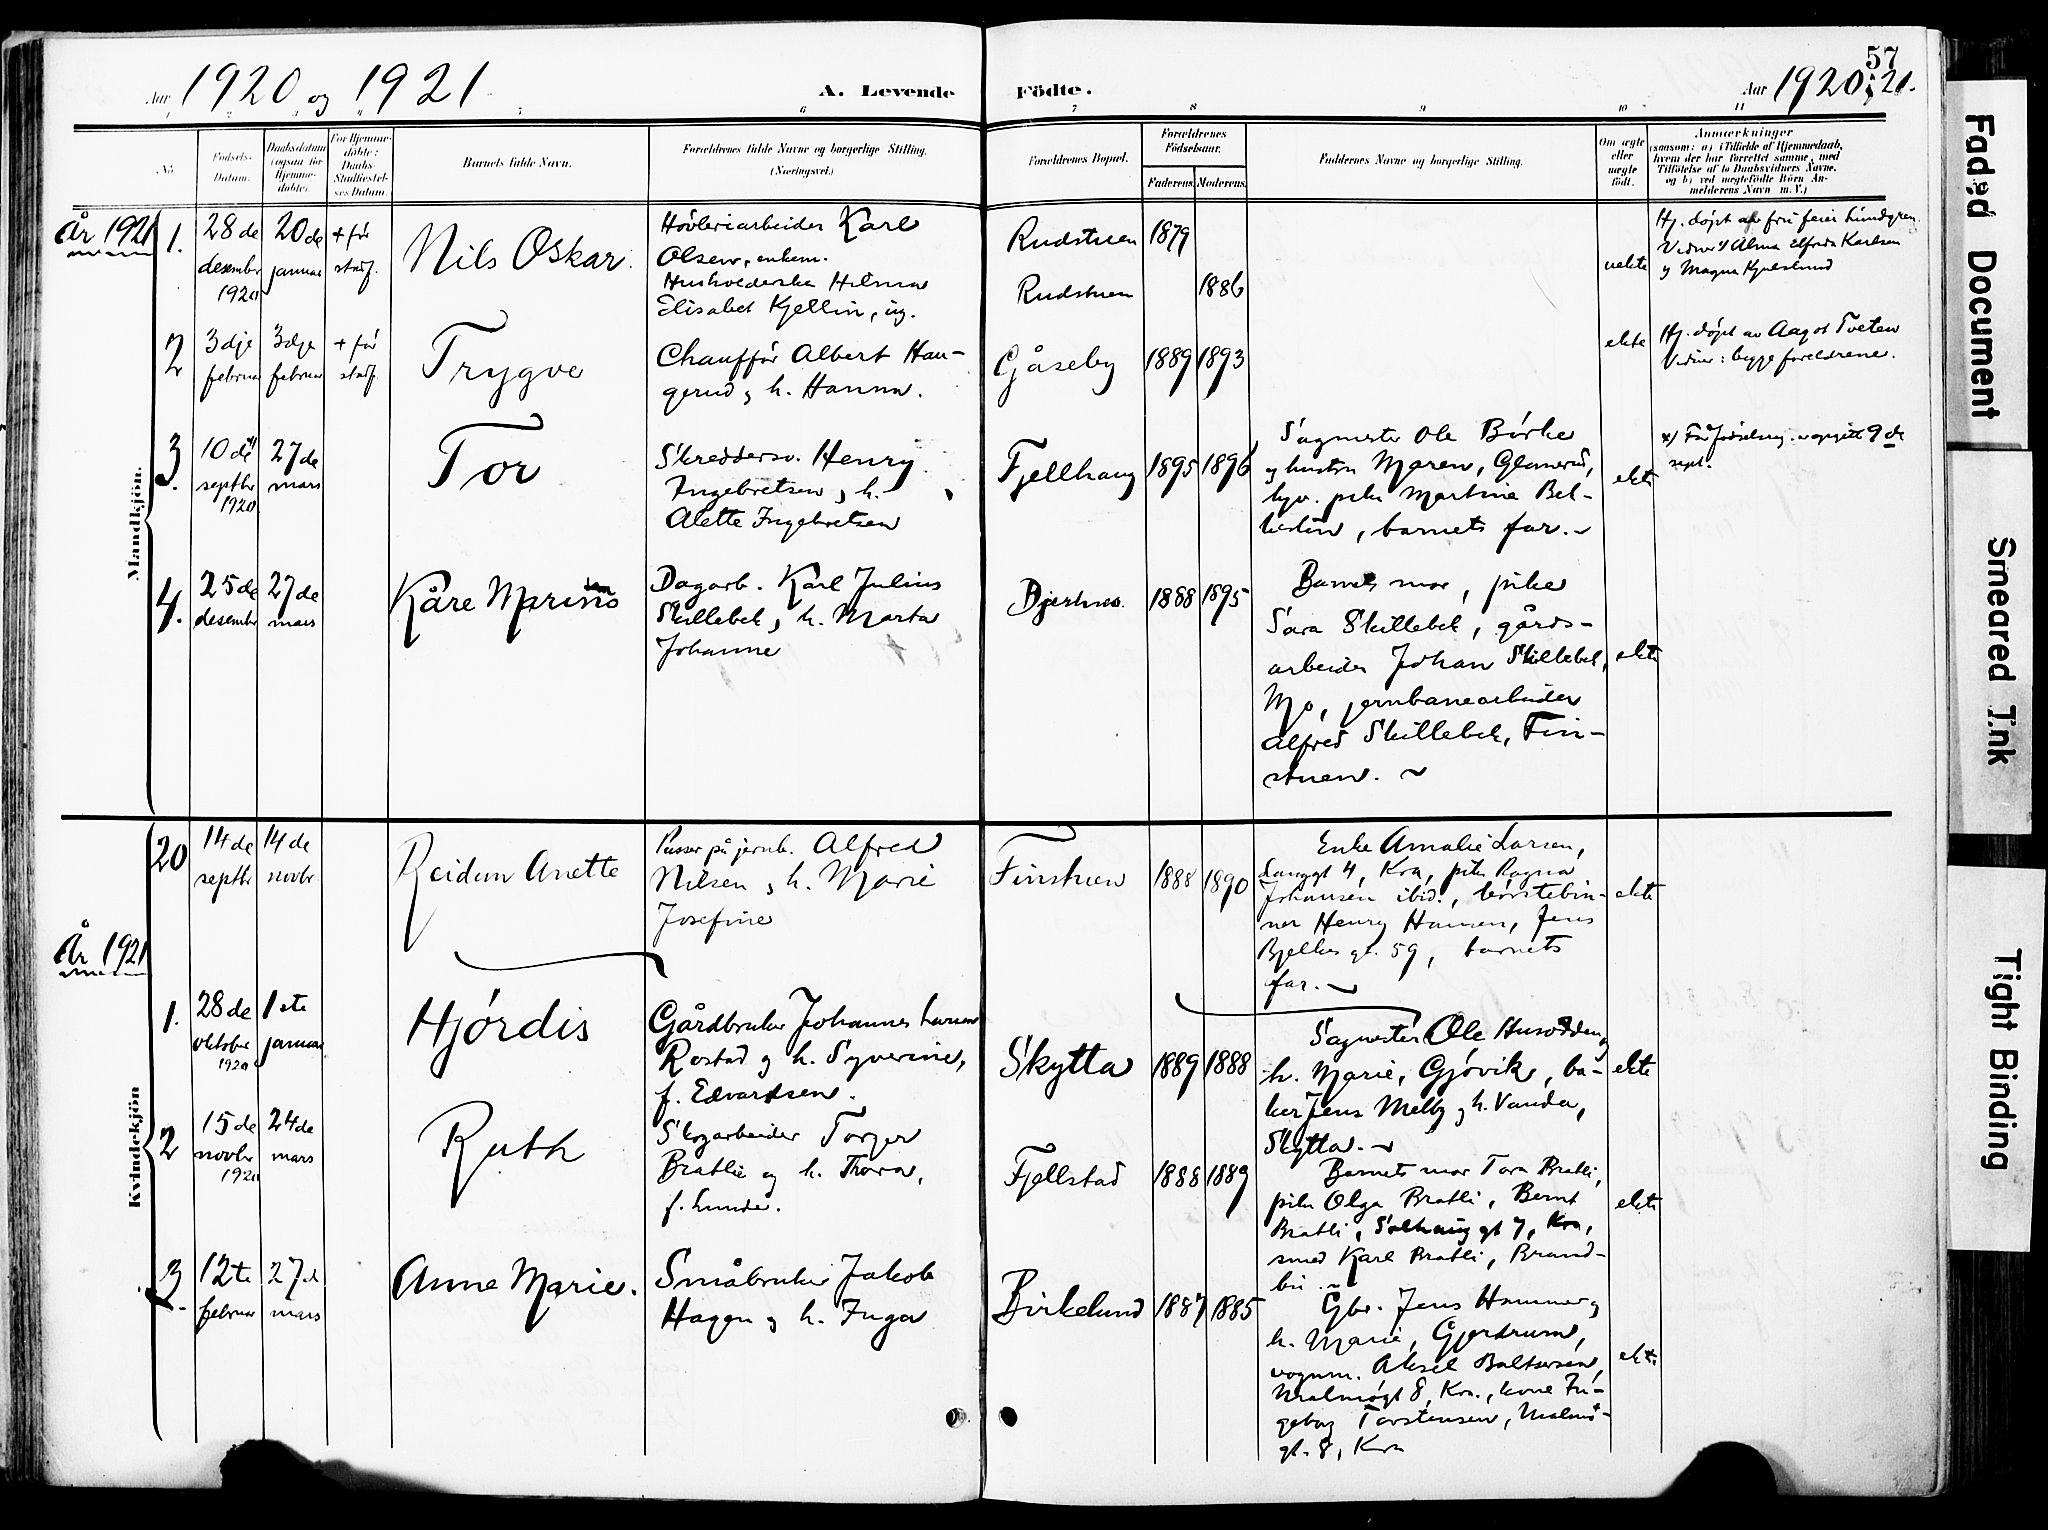 57
Aar 1920 og 1921
A. Levende Födte.
Aar 1920 & 21.
1 2 3 4 5 6 7 8 9 10 11
No.
Fødsels-Datum.
Daabsdatum (ogsaa for Hjemmedøbte).
For Hjemmedøbte: Daabs-Stadfæstelses Datum.
Barnets fulde Navn.
Forældrenes fulde Navne og borgerlige Stilling. (Næringsvei.)
Forældrenes Bopæl.
Forældrenes Fødselsaar.
Faderens. Moderens.
Faddernes Navne og borgerlige Stilling.
Om ægte eller uægte født.
Anmærkninger
(saasom: a) i Tilfælde af Hjemmedaab, hvem der har forrettet samme, med Tilføielse af to Daabsvidners Navne, og b) ved uægtefødte Börn Anmelderens Navn m. V.)
Mandkjön.
År 1921
1. 28 de desember 1920
20 de januar
+ før stadf.
Nils Oskar.
Høvleriarbeider Karl
Olsen, enkem.
Husholderske Hilma
Elisabet Kjellin, ug.
Rudstuen 1879
Rudstuen 1886
uekte
Hj. døpt av fru feier Lundgren.
Vidner: Alma Elfrida Karlsen
og Magna
2 3dje februar
3dje februar
+ før stadf.
Trygve
Chauffør Albert Hau-
gerud og h. Hanna.
Gåseby 1889 1893
ekte
Hj. døpt av Aagot Tveten
Vidner: begge foreldrene.
3. 10 de septbr 1920
27 de mars
Tor
Skreddersv. Henry
Ingebretsen og h.
Alette Ingebretsen
Fjellhaug 1895 1896
Sagmester Ole Börke
og hustru Maren, Glomerud,
syv. pike Martine Bel-
, barnets far.
ekte
x) Før fødselsreg. er opgitt 9 de
sept.
4. 25 de desember
27 de mars
Kåre Marino
Dagarb. Karl Julius
Skillebek og h. Marta
Johanne
Bjertnes. 1888 1895
Barnets mor, pike
Sara Skillebek, gårds-
arbeider Johan Skillebek,
Mo, jernbanearbeider
Alfred Skillebek, Fin-
stuen.
ekte
Kvindekjön
20 14 de septbr
14 de novbr
Reidun Anette
Passer på jernb. Alfred
Nilsen og h. Marie
Josefine
Finstuen 1888 1890
Enke Amalie Larsen,
Langgt 4, Kra, pike Ragna
Johansen ibid., börstebin-
ner Henry Hansen, Jens
Bjelkes gt. 59, barnets
far.
ekte
År 1921
1. 28 de oktober 1920
1 ste januar
Hjördis
Gårdbruker Johannes Larsen
Rostad og h. Syverine,
f. Edvardsen.
Skytta 1889 1888
Sagmester Ole Husodden og
h. Marie, Gjövik, ba-
ker Jens Melby og h. Vanda,
Skytta.
ekte
2 15 de novbr 1920
24 de mars
Ruth
Skogarbeider Torger
Bratlie og h. Thora,
f. Lunde.
Fjellstad 1888 1889
Barnets mor Tora Bratli,
pike Olga Bratli, Bernt
Bratli, Solhaug gt 7, Kra,
smed Karl Bratli, Brand-
bu.
ekte
3 12te februar
27 d. mars
Anne Marie.
Småbruker Jakob
Hagen og h. Inga
Birkelund 1887 1885
Gbr. Jens Hammer og
h. Marie, Gjerdrum,
vognm. Aksel Baltersen,
Malmøgt 8, Kra., kone In-
geborg Torstensen, Malmö-
gt. 8, Kra
ekte
Faded Document
Smeared Ink
Tight Binding